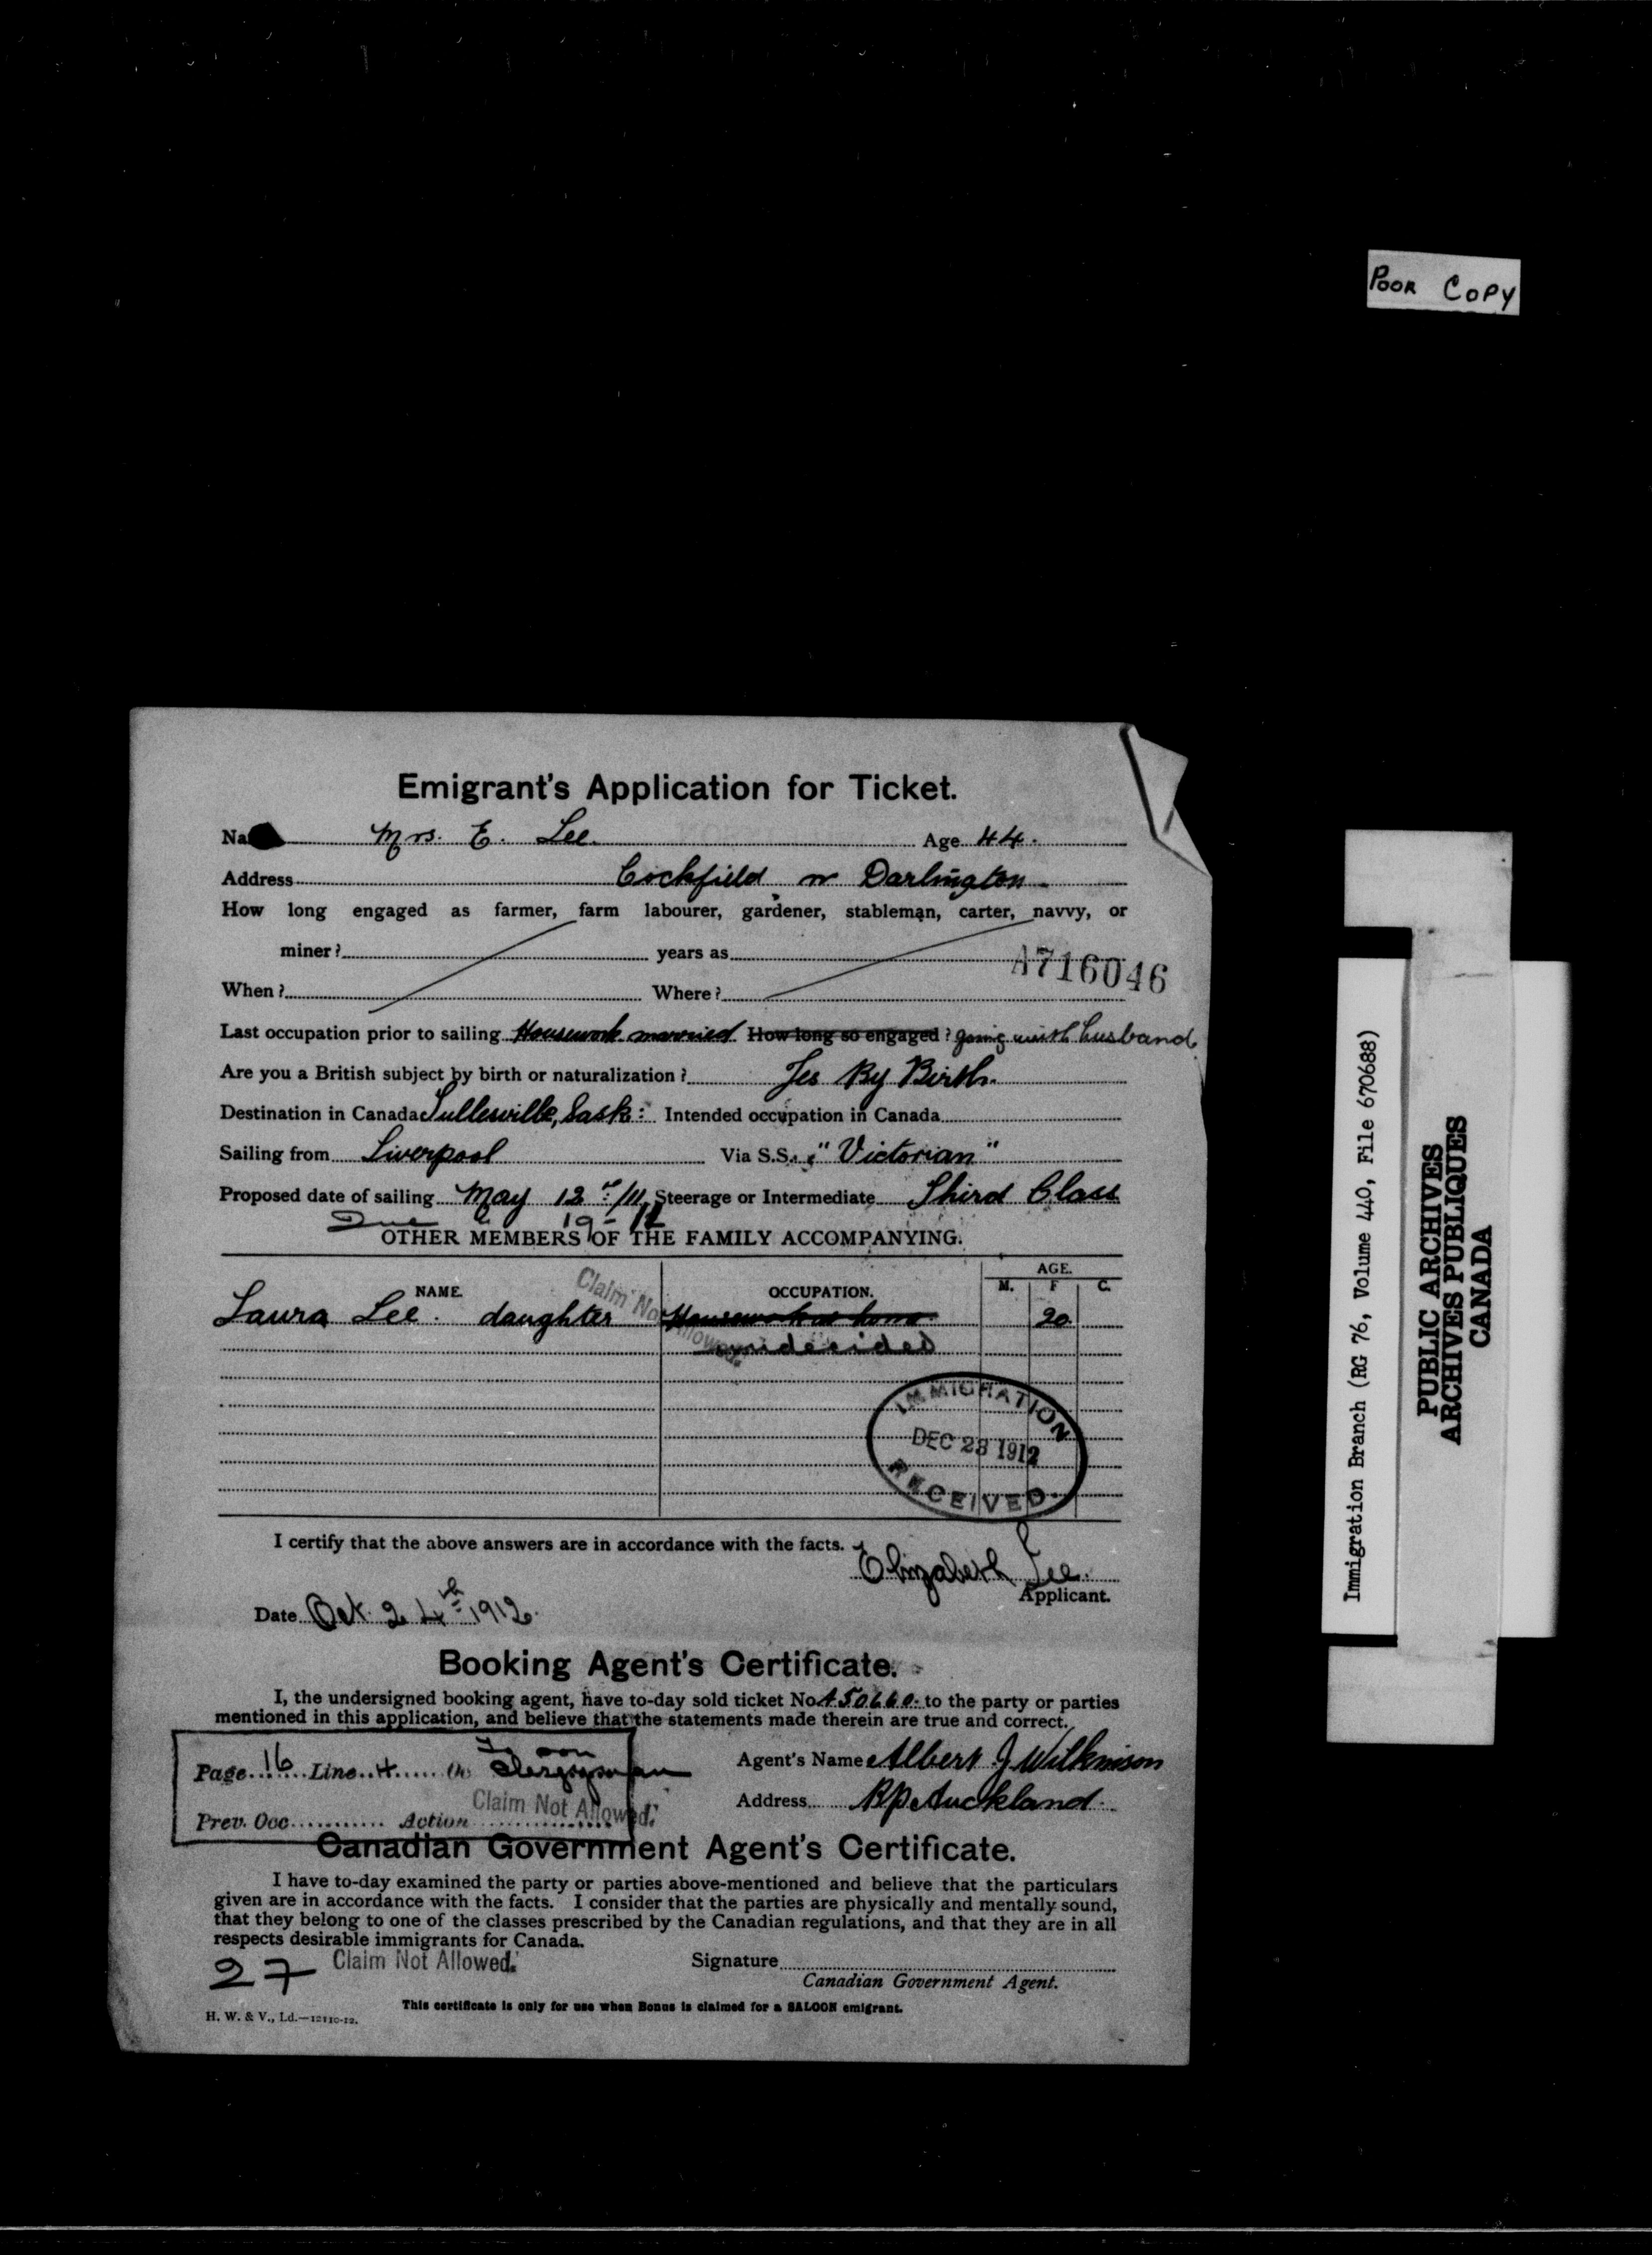 Poor Copy
Emigrant's Application for Ticket.
Na Mrs. E. Lee. Age 44.
Address Cockfield nr Darlington
How long engaged as farmer, farm labourer, gardener, stableman, carter, navvy, or
miner? years as
A716046
When? Where?
Last occupation prior to sailing Housework married How long so engaged? going with husband
Are you a British subject by birth or naturalization? Yes By Birth.
Destination in Canada Sask: Intended occupation in Canada
Sailing from Liverpool Via S.S. "Victorian"
Proposed date of sailing May 12 /11 Steerage or Intermediate Third Class
Due 19-11
OTHER MEMBERS OF THE FAMILY ACCOMPANYING.
NAME. OCCUPATION. AGE.
M. F C.
Laura Lee. daughter 20
Claim Not Allowed.
undecided
IMMIGRATION
DEC 23 1912
RECEIVED.
I certify that the above answers are in accordance with the facts.
Elizabeth Lee.
Applicant.
Date Oct. 24th 1912.
Booking Agent's Certificate.
I, the undersigned booking agent, have to-day sold ticket No. to the party or parties
mentioned in this application, and believe that the statements made therein are true and correct.
Page 16 Line 4
Agent's Name Albert J Wilkinson
Prev. Occ. Action Claim Not Allowed.
Address Bp Auckland
Canadian Government Agent's Certificate.
I have to-day examined the party or parties above-mentioned and believe that the particulars
given are in accordance with the facts. I consider that the parties are physically and mentally sound,
that they belong to one of the classes prescribed by the Canadian regulations, and that they are in all
respects desirable immigrants for Canada.
27 Claim Not Allowed. Signature
Canadian Government Agent.
This certificate is only for use when Bonus is claimed for a SALOON emigrant.
H. W. & V., Ld.—12110-12.
Immigration Branch (RG 76, Volume 440, File 670688)
PUBLIC ARCHIVES
ARCHIVES PUBLIQUES
CANADA